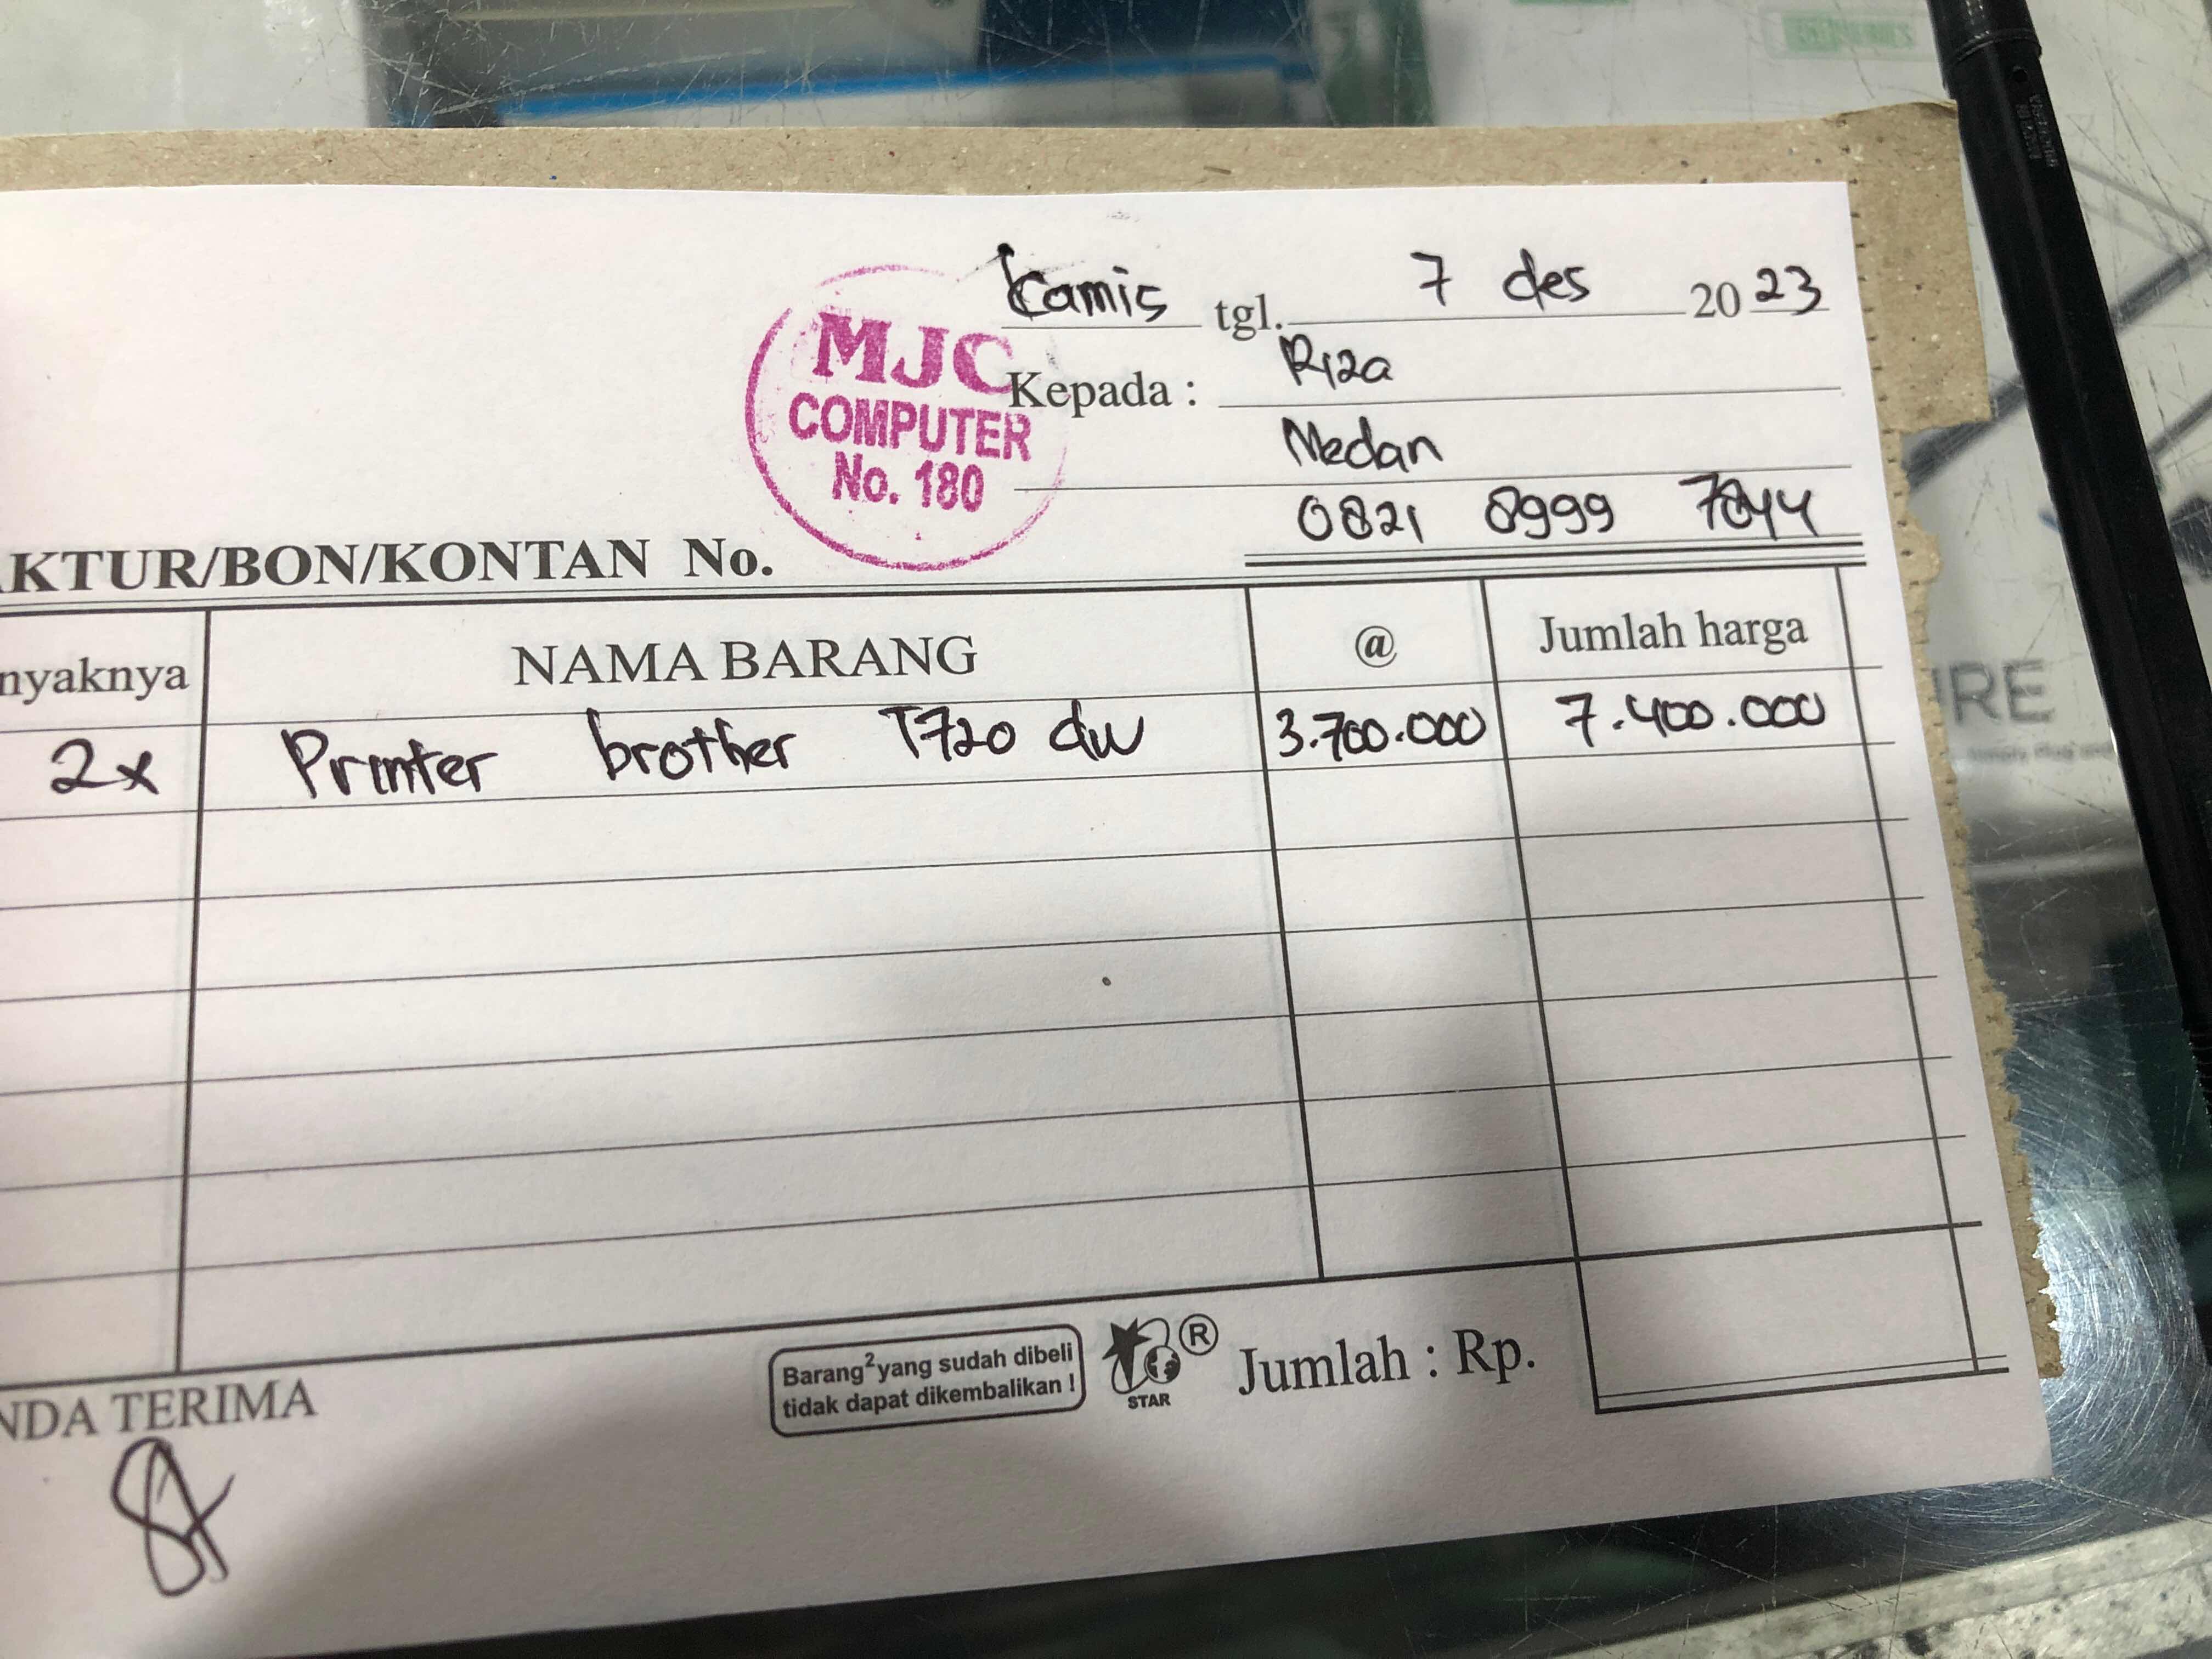 Kamis tgl. 7 des 2023
MJC
COMPUTER
No. 180
Kepada : Riza
Medan
0821 8999 7844
AKTUR/BON/KONTAN No.
nyaknya NAMA BARANG @ Jumlah harga
2x Printer brother T720 dw 3.700.000 7.400.000
NDA TERIMA
Barang²yang sudah dibeli
tidak dapat dikembalikan !
STAR
®
Jumlah : Rp.